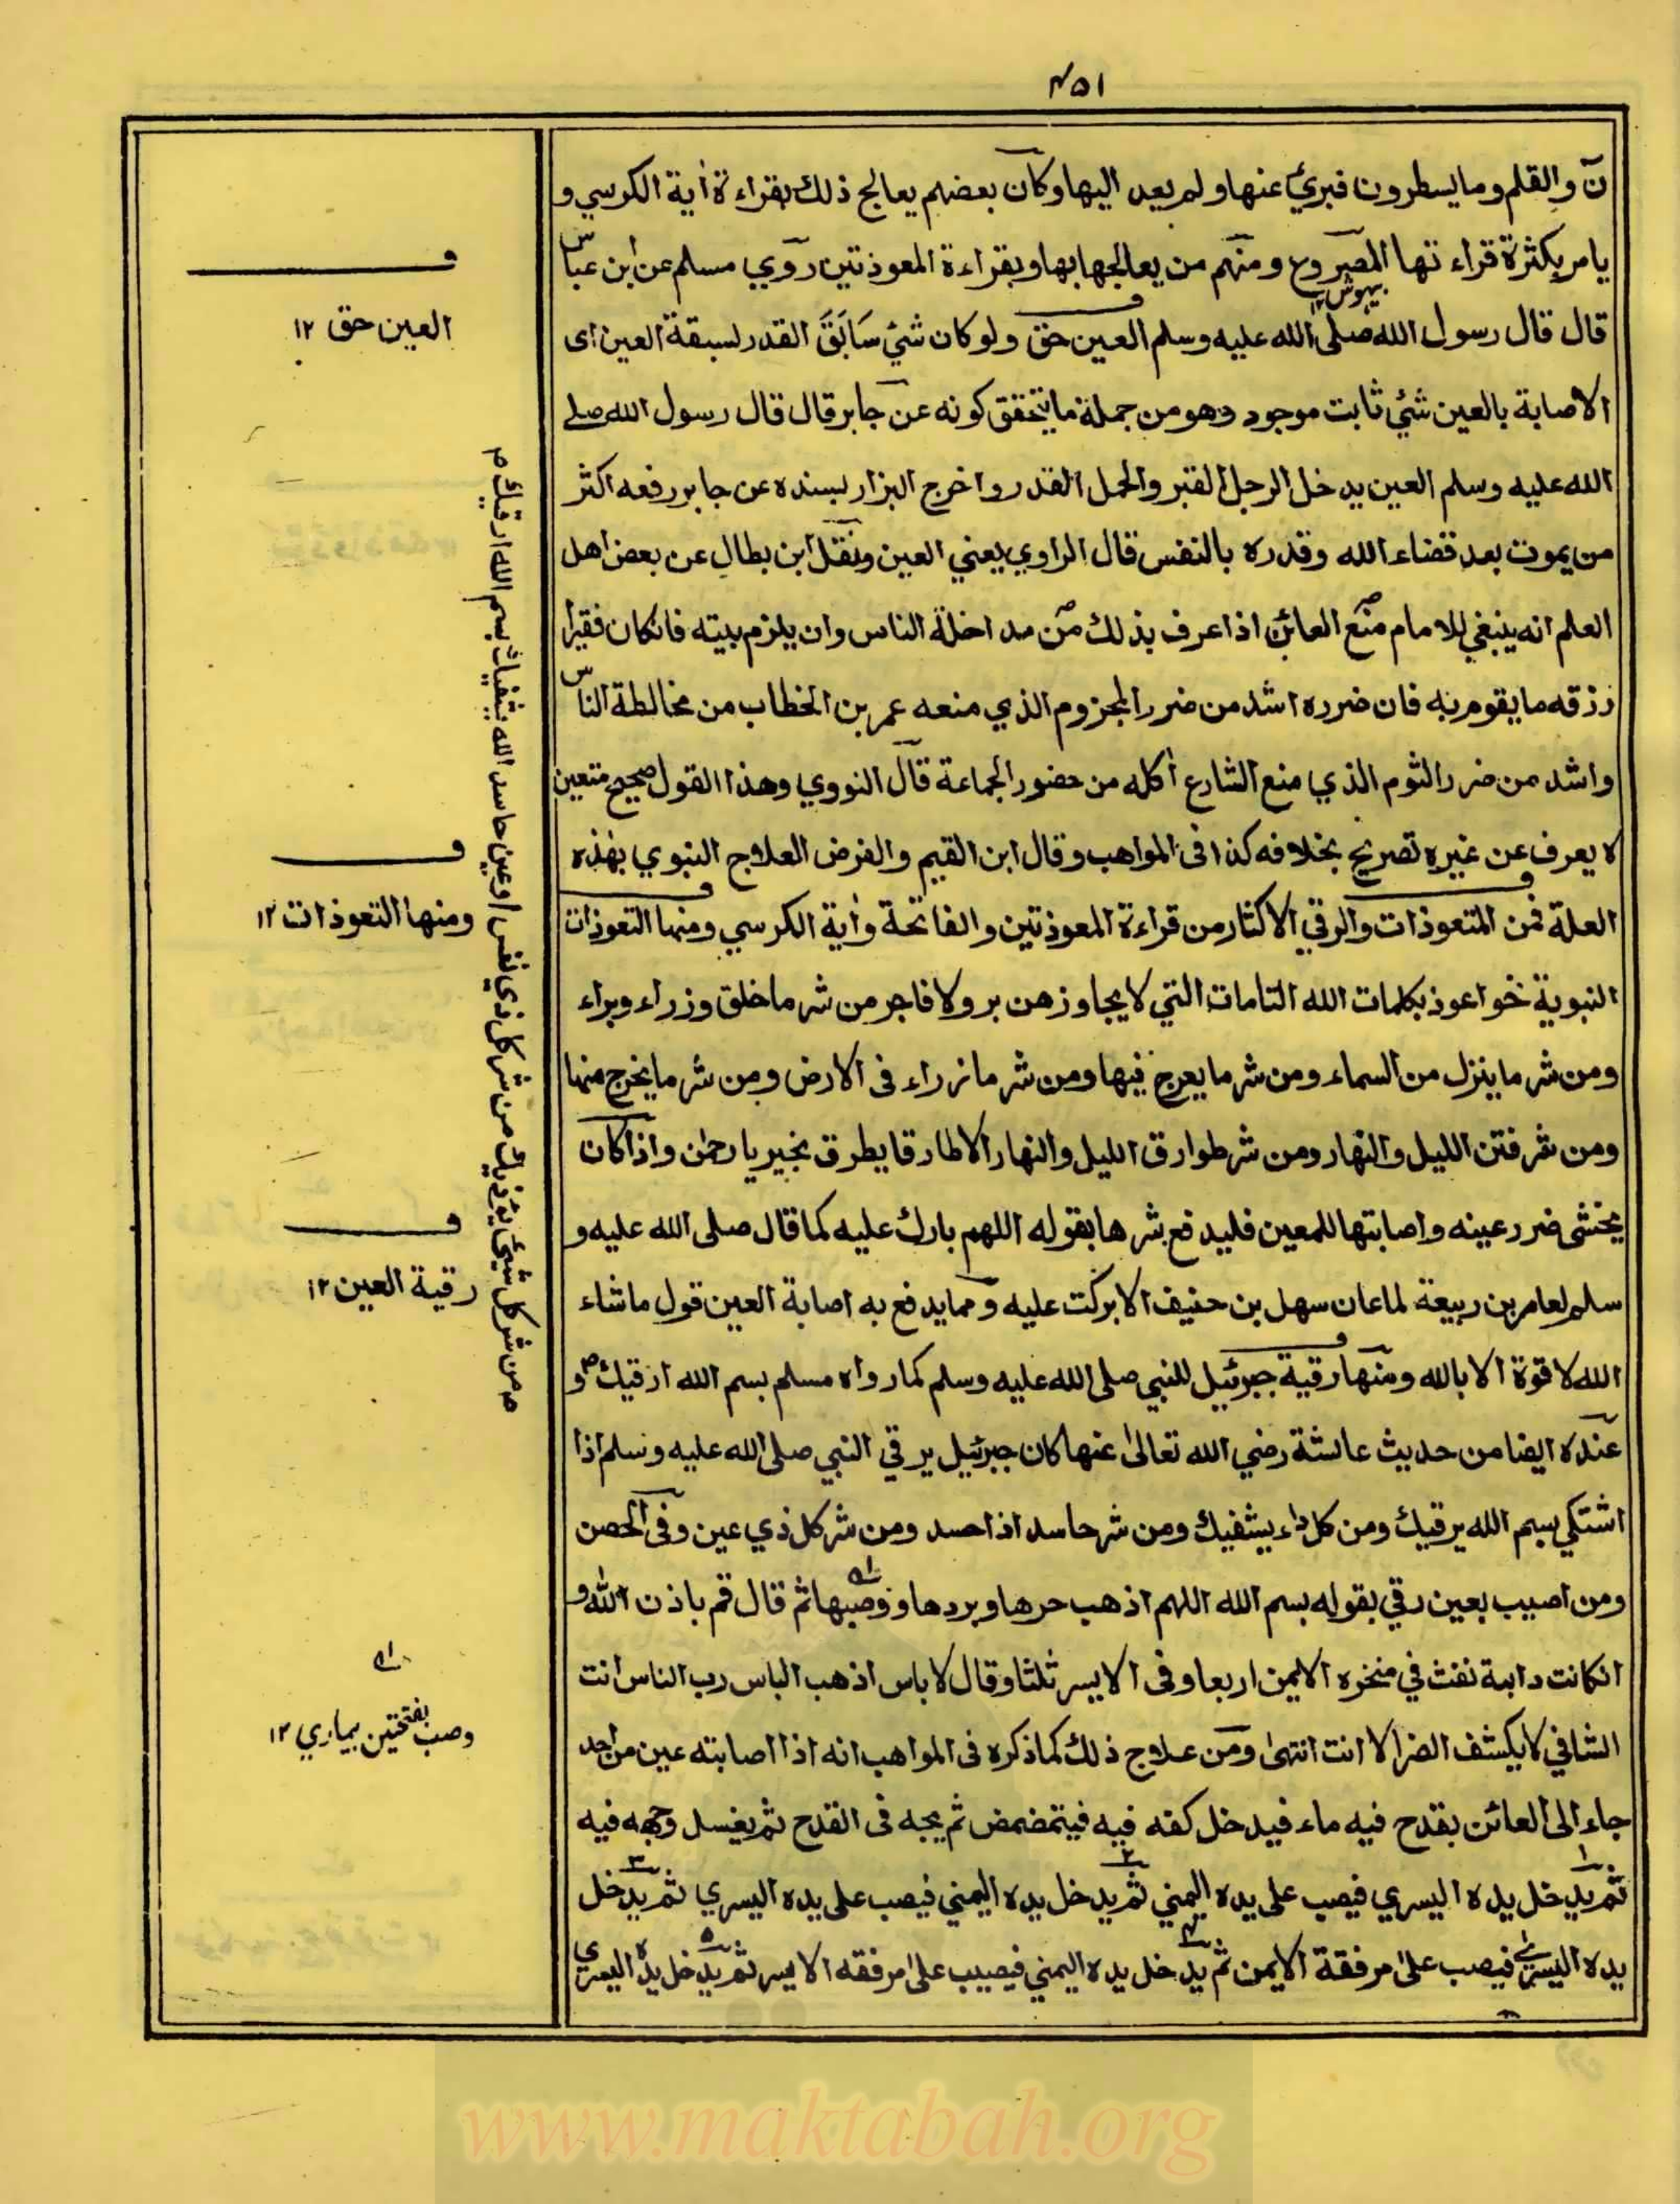 ۴۵۱
نٓ والقلم وما يسطرون فبرئ عنها ولم يعد اليها وكان بعضهم يعالج ذلك بقراءة أية الكرسي و
يامر بكثرة قراءتها المصروع ومنهم من يعالجها بها وبقراءة المعوذتين روي مسلم عن ابن عباس
بيهوش ۱۲
قال قال رسول الله صلى الله عليه وسلم العين حق ولو كان شئ سَابَقَ القدر لسبقة العين اى
الاصابة بالعين شئ ثابت موجود وهو من جملة ما يتحقق كونه عن جابر قال قال رسول الله صلے
الله عليه وسلم العين يدخل الرجل القبر والجمل القدر واخرج البزار بسنده عن جابر رفعه اكثر
من يموت بعد قضاء الله وقدره بالنفس قال الراوي يعني العين ونقل ابن بطال عن بعض اهل
العلم انه ينبغي للامام منع العائن اذا عرف بذلك من مداخلة الناس وان يلزم بيته فانكان فقيرا
رزقه ما يقوم به فان ضرره اشد من ضرر المجزوم الذي منعه عمر بن الخطاب من مخالطة الناس
واشد من ضرر الثوم الذي منع الشارع أكله من حضور الجماعة قال النووي وهذا القول صحيح متعين
لا يعرف عن غيره تصريح بخلافه كذا فى المواهب وقال ابن القيم والغرض العلاج النبوي بهذه
العلة فمن المتعوذات والرقي الاكثار من قراءة المعوذتين والفاتحة وأية الكرسي ومنها التعوذات
النبوية نحو اعوذ بكلمات الله التامات التي لا يجاوزهن بر ولا فاجر من شر ما خلق وزراء وبراء
ومن شر ما ينزل من السماء ومن شر ما يعرج فيها ومن شر ما زراء فى الارض ومن شر ما يخرج منها
ومن شر فتن الليل والنهار ومن شر طوارق الليل والنهار الا طارقا يطرق بخير يا رحمٰن واذا كان
يخشى ضرر عينه واصابتها للمعين فليدفع شرها بقوله اللهم بارك عليه كما قال صلى الله عليه و
سلم لعامر بن ربيعة لما عان سهل بن حنيف الا بركت عليه ومما يدفع به اصابة العين قول ماشاء
الله لا قوة الا بالله ومنها رقية جبرئيل للنبي صلى الله عليه وسلم كما رواه مسلم بسم الله ارقيك م و
عنده ايضا من حديث عائشة رضي الله تعالىٰ عنها كان جبرئيل يرقي النبي صلى الله عليه وسلم اذا
اشتكي بسم الله يرقيك ومن كل داء يشفيك ومن شر حاسد اذا حسد ومن شر كل ذي عين وفى الحصن
ومن اصيب بعين رقي بقوله بسم الله اللهم اذهب حرها وبردها ووصبها ثم قال قم باذن الله و
انكانت دابة نفث في منخره الايمن اربعا وفى الايسر ثلثا وقال لا باس اذهب الباس رب الناس انت
الشافي لا يكشف الضر الا انت انتهىٰ ومن علاج ذلك كما ذكره فى المواهب انه اذا اصابته عين من احد
جاء الى العائن بقدح فيه ماء فيدخل كفه فيه فيتمضمض ثم يمجه فى القدح ثم يغسل وجهه فيه
ثم يدخل يده اليسري فيصب على يده اليمني ثم يدخل يده اليمني فيصب على يده اليسري ثم يدخل
يده اليسرىٰ فيصب علىٰ مرفقة الايمن ثم يدخل يده اليمني فيصيب علىٰ مرفقه الايسر ثم يدخل يده اليسري
العين حق ۱۲
ومنها التعوذات ۱۲
رقية العين ۱۲
وصب بفتحتين بيماري ۱۲
م من شر كل شئ يؤذيك من شر كل ذي نفس او عين حاسد الله يشفيك بسم الله ارقيك م
www.maktabah.org